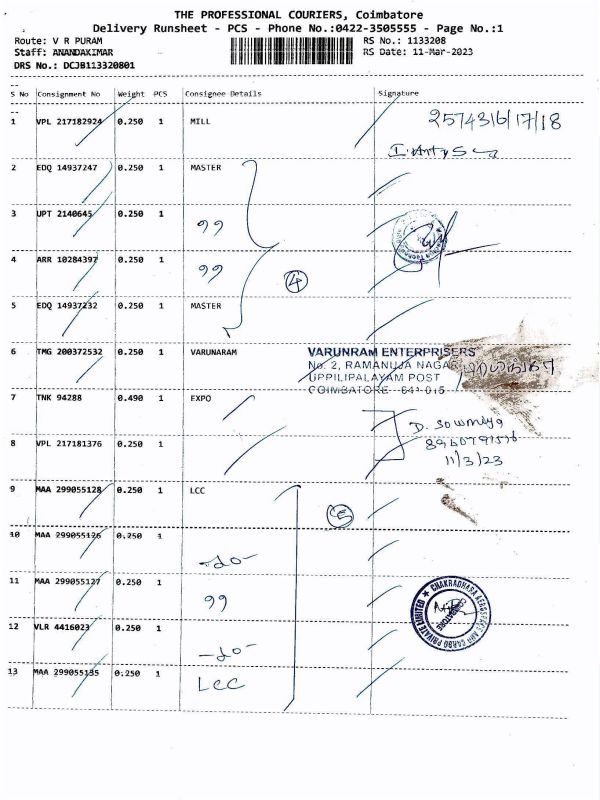 THE PROFESSIONAL COURIERS, Coimbatore
Delivery Runsheet - PCS - Phone No.:0422-3505555 - Page No.:1
Route: V R PURAM
RS No.: 1133208
Staff: ANANDAKIMAR
RS Date: 11-Mar-2023
DRS No.: DCJB113320801
S No Consignment No Weight PCS Consignee Details Signature
1 VPL 217182924 0.250 1 MILL 2574316/17/18
2 EDQ 14937247 0.250 1 MASTER
3 UPT 2140645 0.250 1 99
4 ARR 10284397 0.250 1 99
4
5 EDQ 14937232 0.250 1 MASTER
6 TMG 200372532 0.250 1 VARUNARAM
VARUNRAM ENTERPRISERS
No. 2, RAMANUJA NAGAR
UPPILIPALAYAM POST
COIMBATORE - 641 015
7 TNK 94288 0.490 1 EXPO
D. Sowmiya
11/3/23
8 VPL 217181376 0.250 1
9 MAA 299055128 0.250 1 LCC
10 MAA 299055126 0.250 1 -do-
11 MAA 299055127 0.250 1 99
12 VLR 4416023 0.250 1 -do-
13 MAA 299055135 0.250 1 LCC
CHAKRADHARA AEROSPACE AND CARGO PRIVATE LIMITED
COIMBATORE